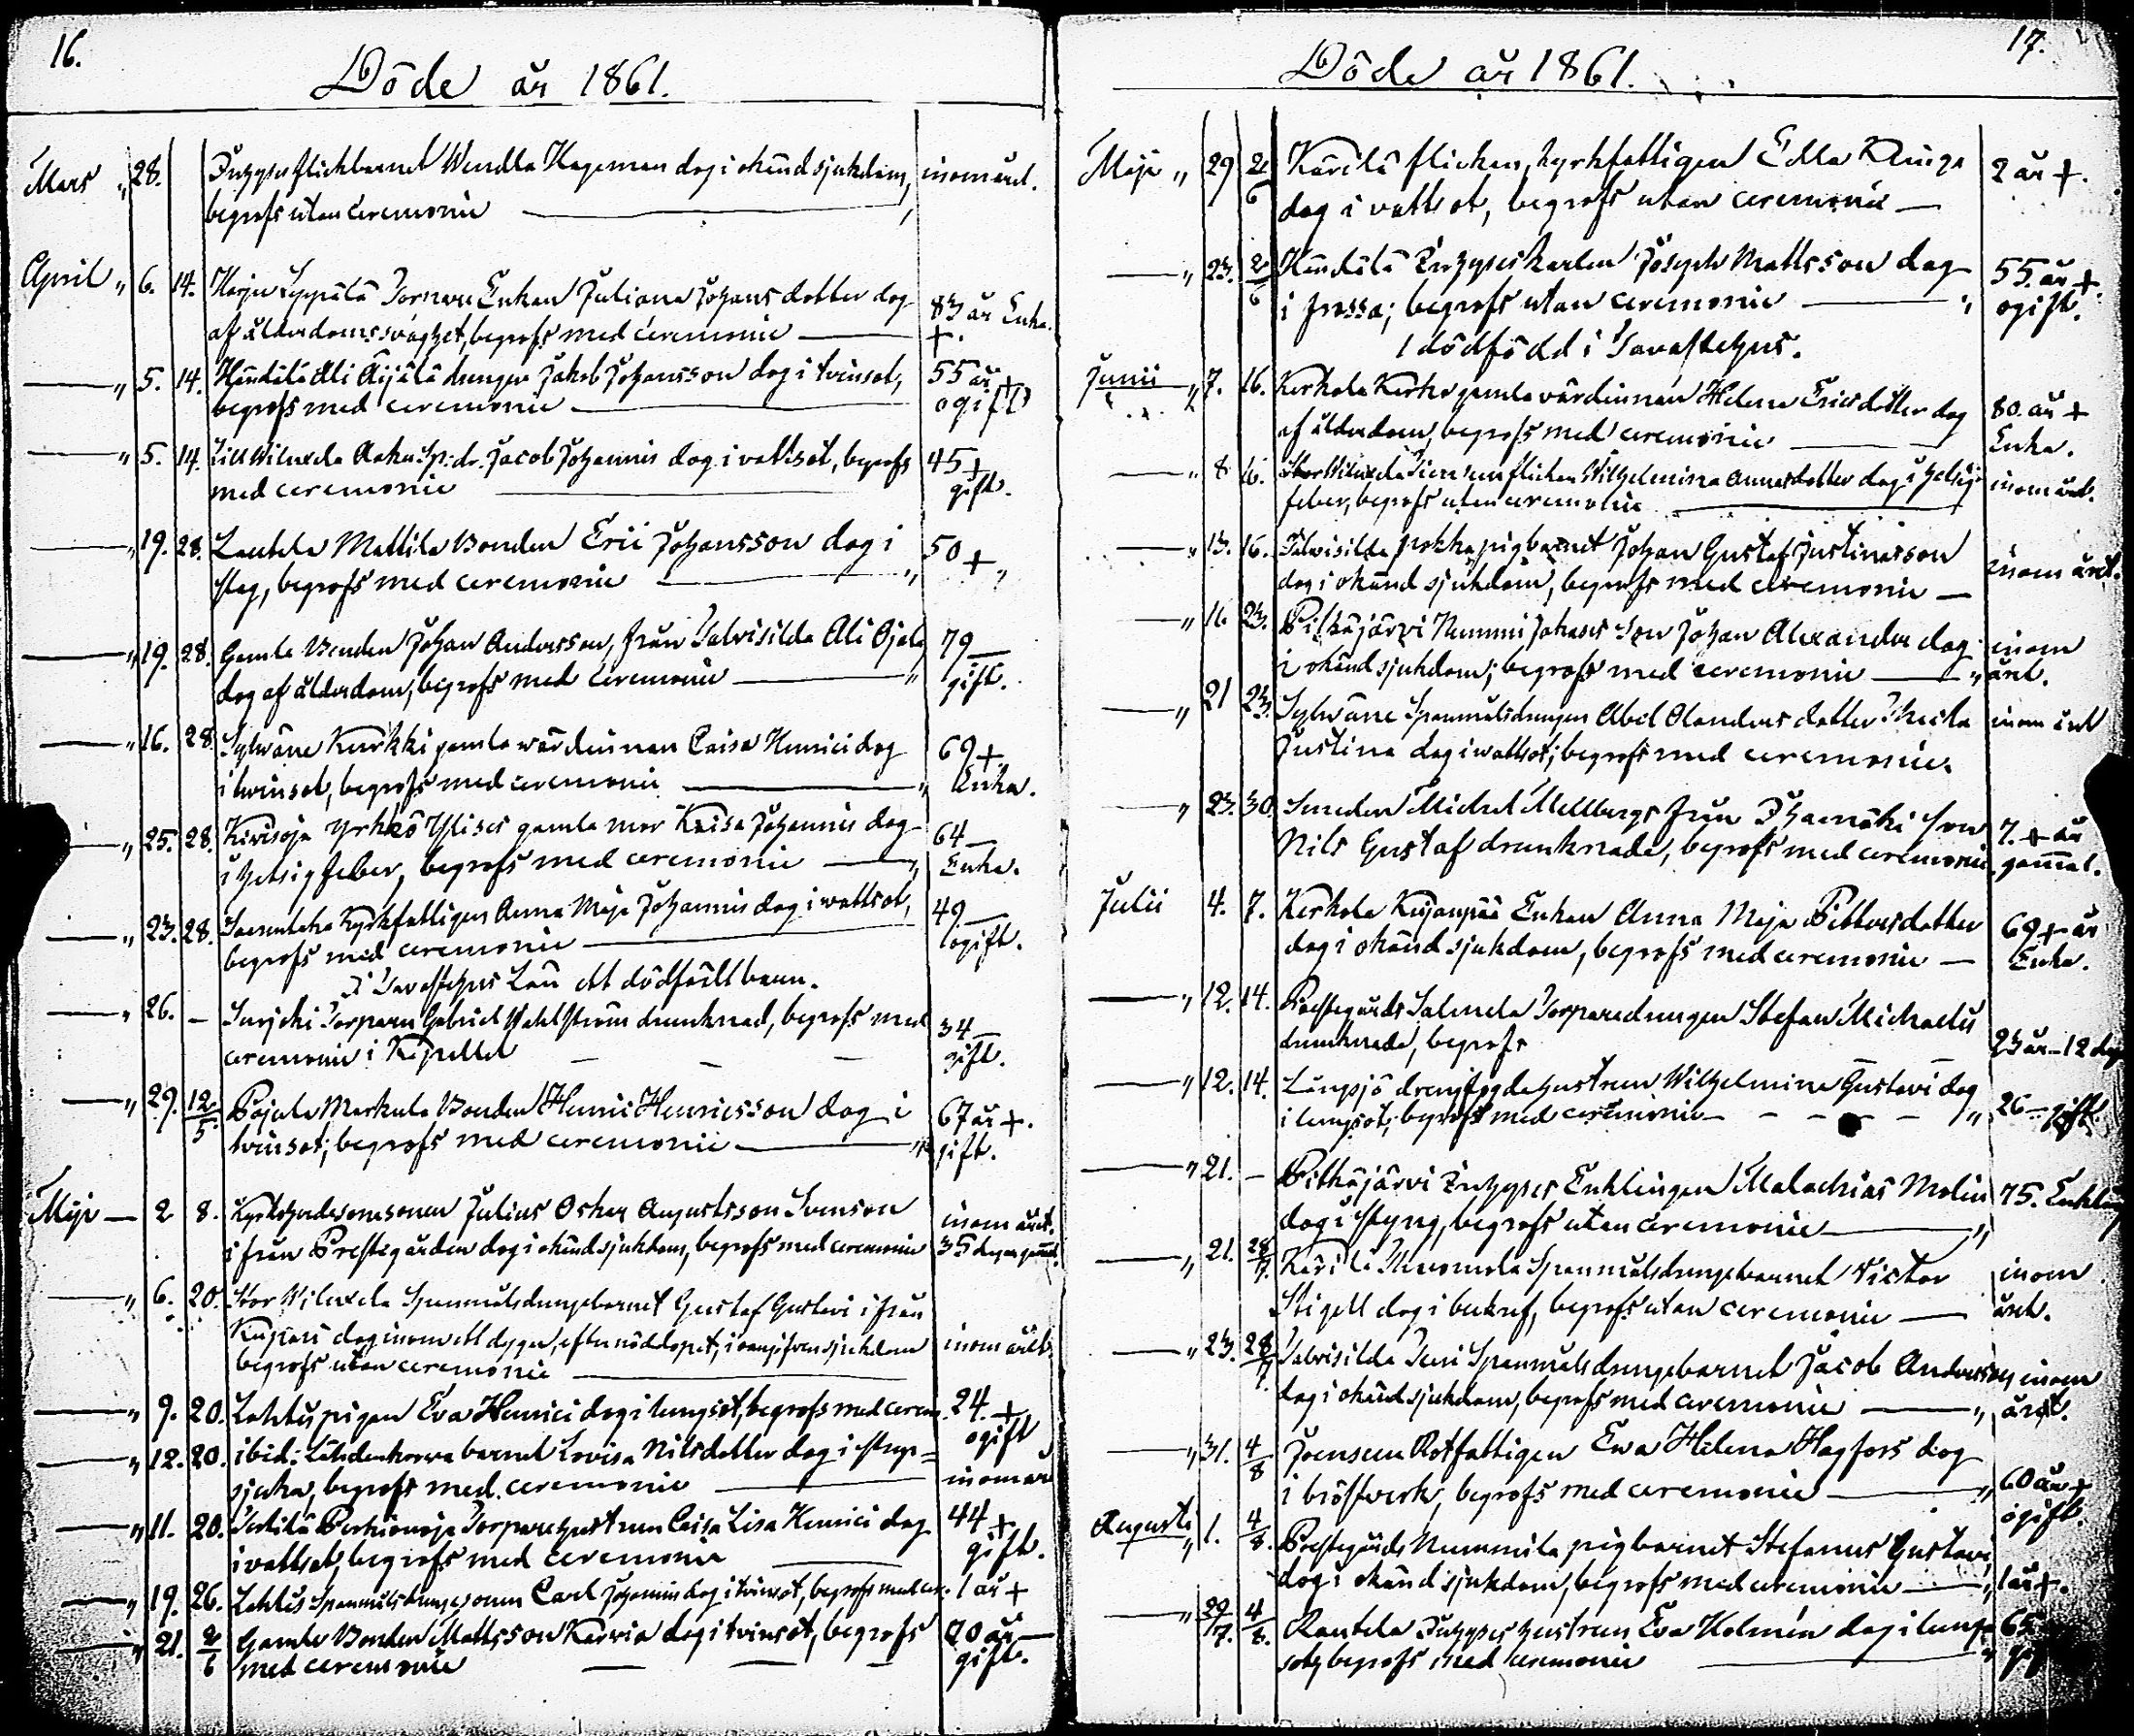 16.
Döde år 1861.
Mars „ 28. Inhysesflickbarnet Wendla Hageman dog i okänd sjukdom, inom året.
begrofs utan ceremonie
April „ 6. 14. Harju Seppälä Torpare Enkan Juliana Johansdotter dog 83 år Enka.
af ålderdomssvaghet, begrofs med ceremonie +.
„ 5. 14. Händälä Ali Äijälä drengen Jakob Johansson dog i tvinsot, 55 år +
begrofs med ceremonie ogift
„ 5. 14. Lill Wilunda Jacob Johannis dog i vattsot, begrofs 45 +
med ceremonie gift.
„ 19. 28. Lautela Mattila Bonden Eric Johansson dog i 50 +
slag, begrofs med ceremonie
„ 19. 28. Gamle Bonden Johan Andersson, från Talvisilda Ali Ojala 79
dog af ålderdom, begrofs med ceremonie gift.
„ 16. 28. Sylwäne Kurkki gamla wärdinnan Caisa Henrici dog 69 +
i tvinsot, begrofs med ceremonie Enka.
„ 25. 28. Kivisoja Yrkkö gamla mor Kaisa Johannis dog 64
i hetsigfeber, begrofs med ceremonie Enka.
„ 23. 28. Kyrkfattigen Anna Maja Johannis dog i wattsot, 49
begrofs med ceremonie ogift.
I Tavastehus Län ett dödfödt barn.
„ 26. – Torparen Gabriel Wahlström drunknad, begrofs med 34
ceremonie i Kapellet gift.
„ 29. 12/5 Pajula Markula Bonden Henric Henricsson dog i 67 år +.
tvinsot; begrofs med ceremonie gift.
Maji 2 8. Kyrkoherdesonsonen Julius Oskar Augustsson Svenson inom året.
ifrån Prestegården dog i okänd sjukdom, begrofs med ceremonie 35 dagar gammal.
„ 6. 20. Stor Wilunda Spanmålsdrengebarnet Gustaf Gustavi ifrån
Kuppari dog inom ett dygn, efter nöddopet, i sjukdom inom året.
begrofs utan ceremonie
„ 9. 20. Lahtis pigan Eva Henrici dog i lungsot, begrofs med cerem. 24. +
ogift
„ 12. 20. ibid: barnet Lovisa Nilsdotter dog i strup= inom år
sjuka, begrofs med ceremonie
„ 11. 20. Torparehustrun Caisa Lisa Henrici dog 44 +
i vattsot, begrofs med ceremonie gift.
„ 19. 26. Lahtis Spanmålsdrengesonen Carl Johannis dog i tvinsot, begrofs med cer. 1 år +
„ 21. 2/6 Gamle Bonden Mattsson Karvia dog i tvinsot, begrofs 70 år
med ceremonie gift.
17.
Döde år 1861.
Maji „ 29 2/6 Kärilä flickan, kyrkfattigen Edla Klinga 2 år +.
dog i vattsot, begrofs utan ceremonie
„ 23. 2/6 Händälä Inhyseskarlen Joseph Mattsson dog 55 år +.
i frossa; begrofs utan ceremonie ogift.
1 dödfödd i Tavastehus.
Junii „ 7. 16. Kerkola Kerko gamla värdinnan Helena Ericsdotter dog 80 år +
af ålderdom, begrofs med ceremonie Enka.
„ 8 16. Stor Wilunda flickan Wilhelmina Annasdotter dog i hetsig inom året.
feber, begrofs utan ceremonie
„ 13. 16. Talvisilda pokka pigbarnet Johan Gustaf Justinasson inom året.
dog i okänd sjukdom, begrofs med ceremonie
„ 16 23. Pitkäjärvi Nummi Son Johan Alexander dog inom
i okänd sjukdom; begrofs med ceremonie året.
„ 21 23. Sylväne Spanmålsdrengen Abel Olanders dotter Thecla inom året
Justina dog i wattsot; begrofs med ceremonie.
„ 23. 30. Smeden Michel Mellbergs från Ihamäki son 7. + år
Nils Gustaf drunknade, begrofs med ceremonie gammal.
Julii 4. 7. Kerkola Kujanpää Enkan Anna Maja Pettersdotter 69 + år
dog i okänd sjukdom, begrofs med ceremonie Enka.
„ 12. 14. Prestegårds Salmela Torparedrengen Stefan Michaelis
drunknade, begrofs 23 år – 12 dag
„ 12. 14. Långsjö hustrun Wilhelmina Gustavi dog
i lungsot, begrofs med ceremonie 26 gift.
„ 21. – Pitkäjärvi Inhyses Enklingen Malachias Molin 75. Enkling
dog i styng, begrofs utan ceremonie
„ 21. 28/7. Kärilä Spanmålsdrengebarnet Victor inom
Stigell dog i begrofs utan ceremonie året.
„ 23. 28/7. Talvisilda Spanmålsdrengebarnet Jacob Andersson inom
dog i okänd sjukdom, begrofs med ceremonie året.
„ 31. 4/8 Joensuu Rotfattigen Eva Helena Hagfors dog
i bröstverk, begrofs med ceremonie 60 år +
ogift.
Augusti „ 1. 4/8. Prestegårds Nummila pigbarnet Stefanus Gustavi
dog i okänd sjukdom, begrofs med ceremonie 1 år +.
„ 29/7. 4/8. Rautela Inhyses hustrun Eva Holmén dog i lung= 65
sot, begrofs med ceremonie